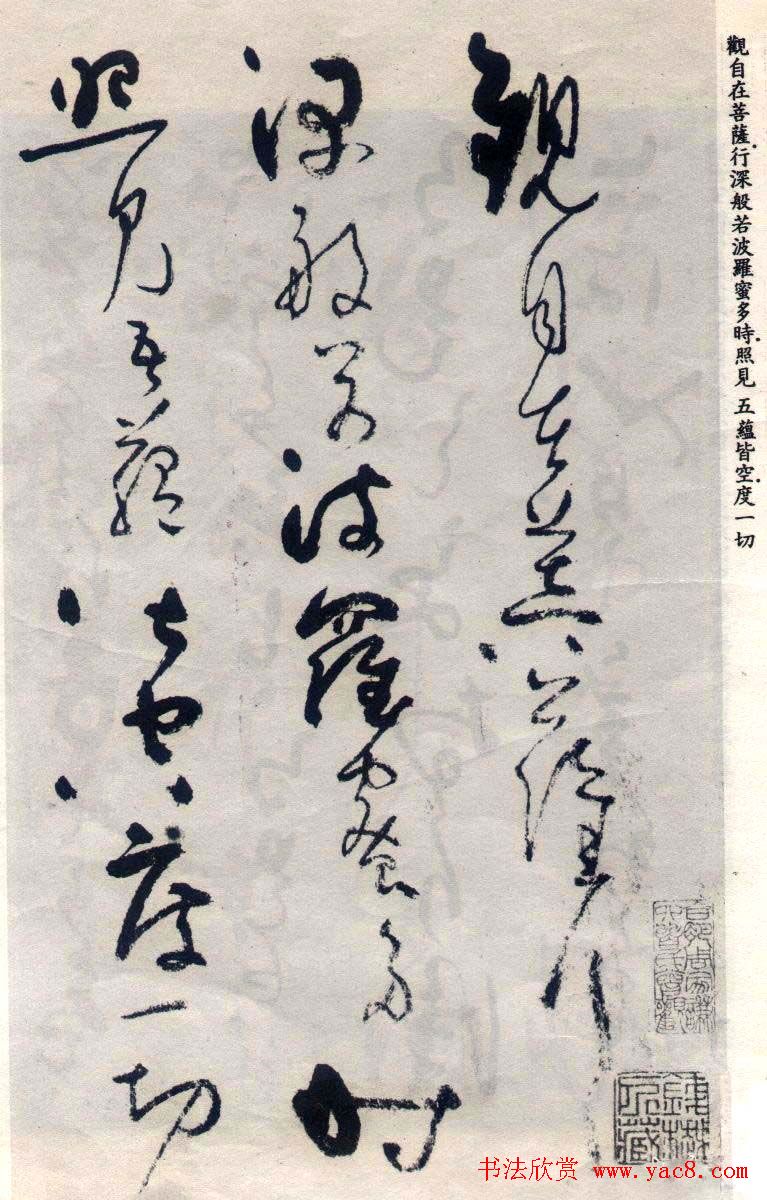 觀自在菩薩.行深般若波羅蜜多時.照見五蘊皆空.度一切
觀自在菩薩行
深般若波羅蜜多時
照見五蘊皆空度一切
书法欣赏 www.yac8.com